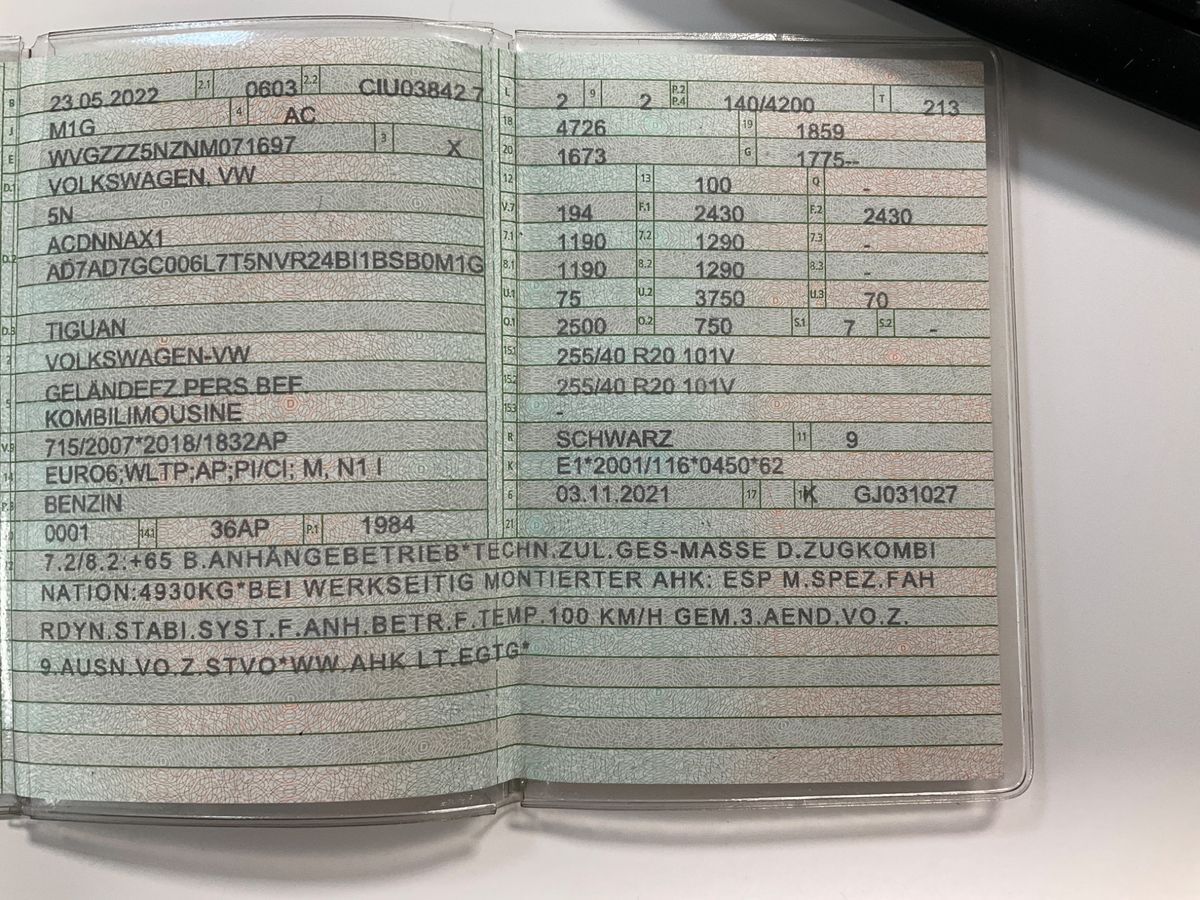 B 23.05.2022 2.1 0603 2.2 CIU03842 7
J M1G 4 AC
E WVGZZZ5NZNM071697 3 X
D.1 VOLKSWAGEN, VW
5N
D.2 ACDNNAX1
AD7AD7GC006L7T5NVR24BI1BSB0M1G
D.3 TIGUAN
2 VOLKSWAGEN-VW
GELÄNDEFZ.PERS.BEF.
5 KOMBILIMOUSINE
V.9 715/2007*2018/1832AP
14 EURO6;WLTP;AP;PI/CI; M, N1 I
P.3 BENZIN
10 0001 14.1 36AP P.1 1984
L 2 9 2 P.2 P.4 140/4200 T 213
18 4726 19 1859
20 1673 G 1775--
12 13 100 Q -
V.7 194 F.1 2430 F.2 2430
7.1 1190 7.2 1290 7.3 -
8.1 1190 8.2 1290 8.3 -
U.1 75 U.2 3750 U.3 70
O.1 2500 O.2 750 S.1 7 S.2 -
15.1 255/40 R20 101V
15.2 255/40 R20 101V
15.3 -
R SCHWARZ 11 9
K E1*2001/116*0450*62
6 03.11.2021 17 K 16 GJ031027
21
22 7.2/8.2:+65 B.ANHÄNGEBETRIEB*TECHN.ZUL.GES-MASSE D.ZUGKOMBI
NATION:4930KG*BEI WERKSEITIG MONTIERTER AHK: ESP M.SPEZ.FAH
RDYN.STABI.SYST.F.ANH.BETR.F.TEMP.100 KM/H GEM.3.AEND.VO.Z.
9.AUSN.VO.Z.STVO*WW.AHK LT.EGTG*